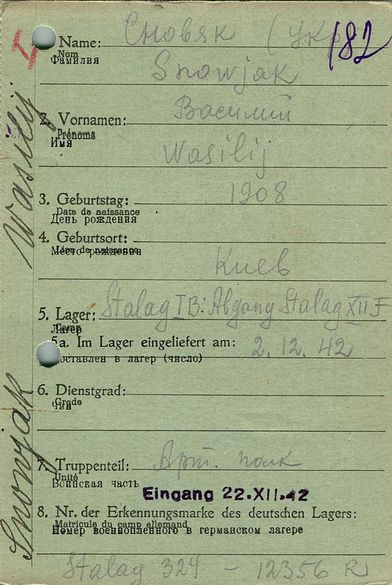 182
Name: Сновяк (Укр
Nom
Фамилия
Snowjak
2. Vornamen: Василий
Prénoms
Имя
Wasilij
3. Geburtstag: 1908
Date de naissance
День рождения
4. Geburtsort:
Lieu de naissance
Место рождения
Киев
5. Lager: Stalag IB: Abgang Stalag XII F
Camp
Лагерь
5a. Im Lager eingeliefert am:
Доставлен в лагерь (число) 2.12.42
6. Dienstgrad:
Grade
Чин
7. Truppenteil: Арт. полк
Unité
Воинская часть
Eingang 22.XII.42
8. Nr. der Erkennungsmarke des deutschen Lagers:
Matricule du camp allemand
Номер военнопленного в германском лагере
Stalag 324 - 12356 R
Snowjak Wasilij